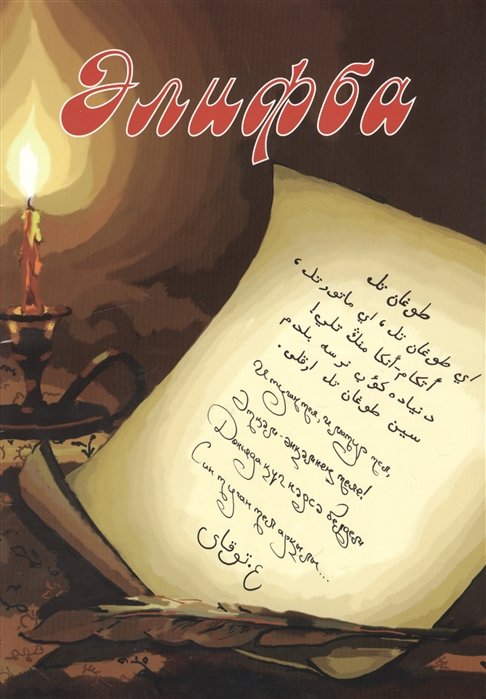 Әлифба
طوغان تل
اي طوغان تل، اي ماتور تل،
أتكام-أنكامنڭ تلي!
دنياده كوب نرسه بلدم
سين طوغان تل ارقلی.
И туган тел, и матур тел,
Әткәм-әнкәмнең теле!
Дөньяда күп нәрсә белдем
Син туган тел аркылы...
ع. توقای